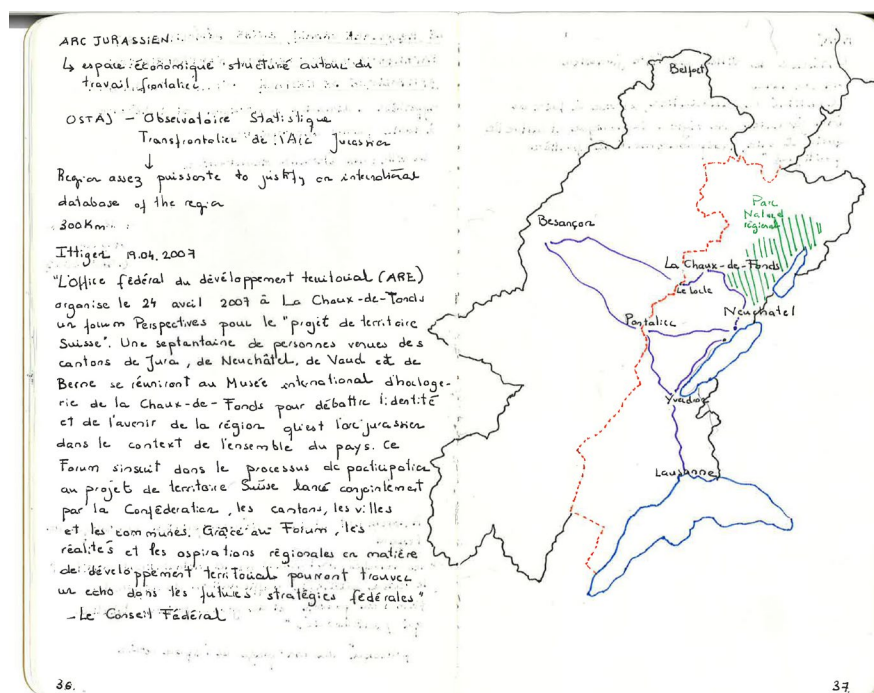 ARC JURASSIEN.
↳ espace économique structuré autour du
travail frontalier
OSTAJ – Observatoire Statistique
Transfrontalier de l'Arc Jurassien
↓
Region assez puissante to justify an international
database of the region
300Km
Ittigen 19.04.2007
"L'Office fédéral du développement territorial (ARE)
organise le 24 avril 2007 à La Chaux-de-Fonds
un forum Perspectives pour le "projet de territoire
Suisse". Une septantaine de personnes venues des
cantons de Jura, de Neuchâtel, de Vaud et de
Berne se réuniront au Musée international d'horloge-
rie de la Chaux-de-Fonds pour débattre l'identité
et de l'avenir de la région qu'est l'arc jurassien
dans le context de l'ensemble du pays. Ce
Forum s'inscrit dans le processus de participation
au projet de territoire Suisse lancé conjointement
par la Confédération, les cantons, les villes
et les communes. Grâce au Forum, les
réalités et les aspirations régionales en matière
de développement territorial pourront trouver
un echo dans les futures stratégies fédérales"
– Le Conseil Fédéral
36.
Belfort
Parc
Naturel
régional
Besançon
La Chaux-de-Fonds
Le Locle
Neuchâtel
Pontalier
Yverdon
Lausanne
37.